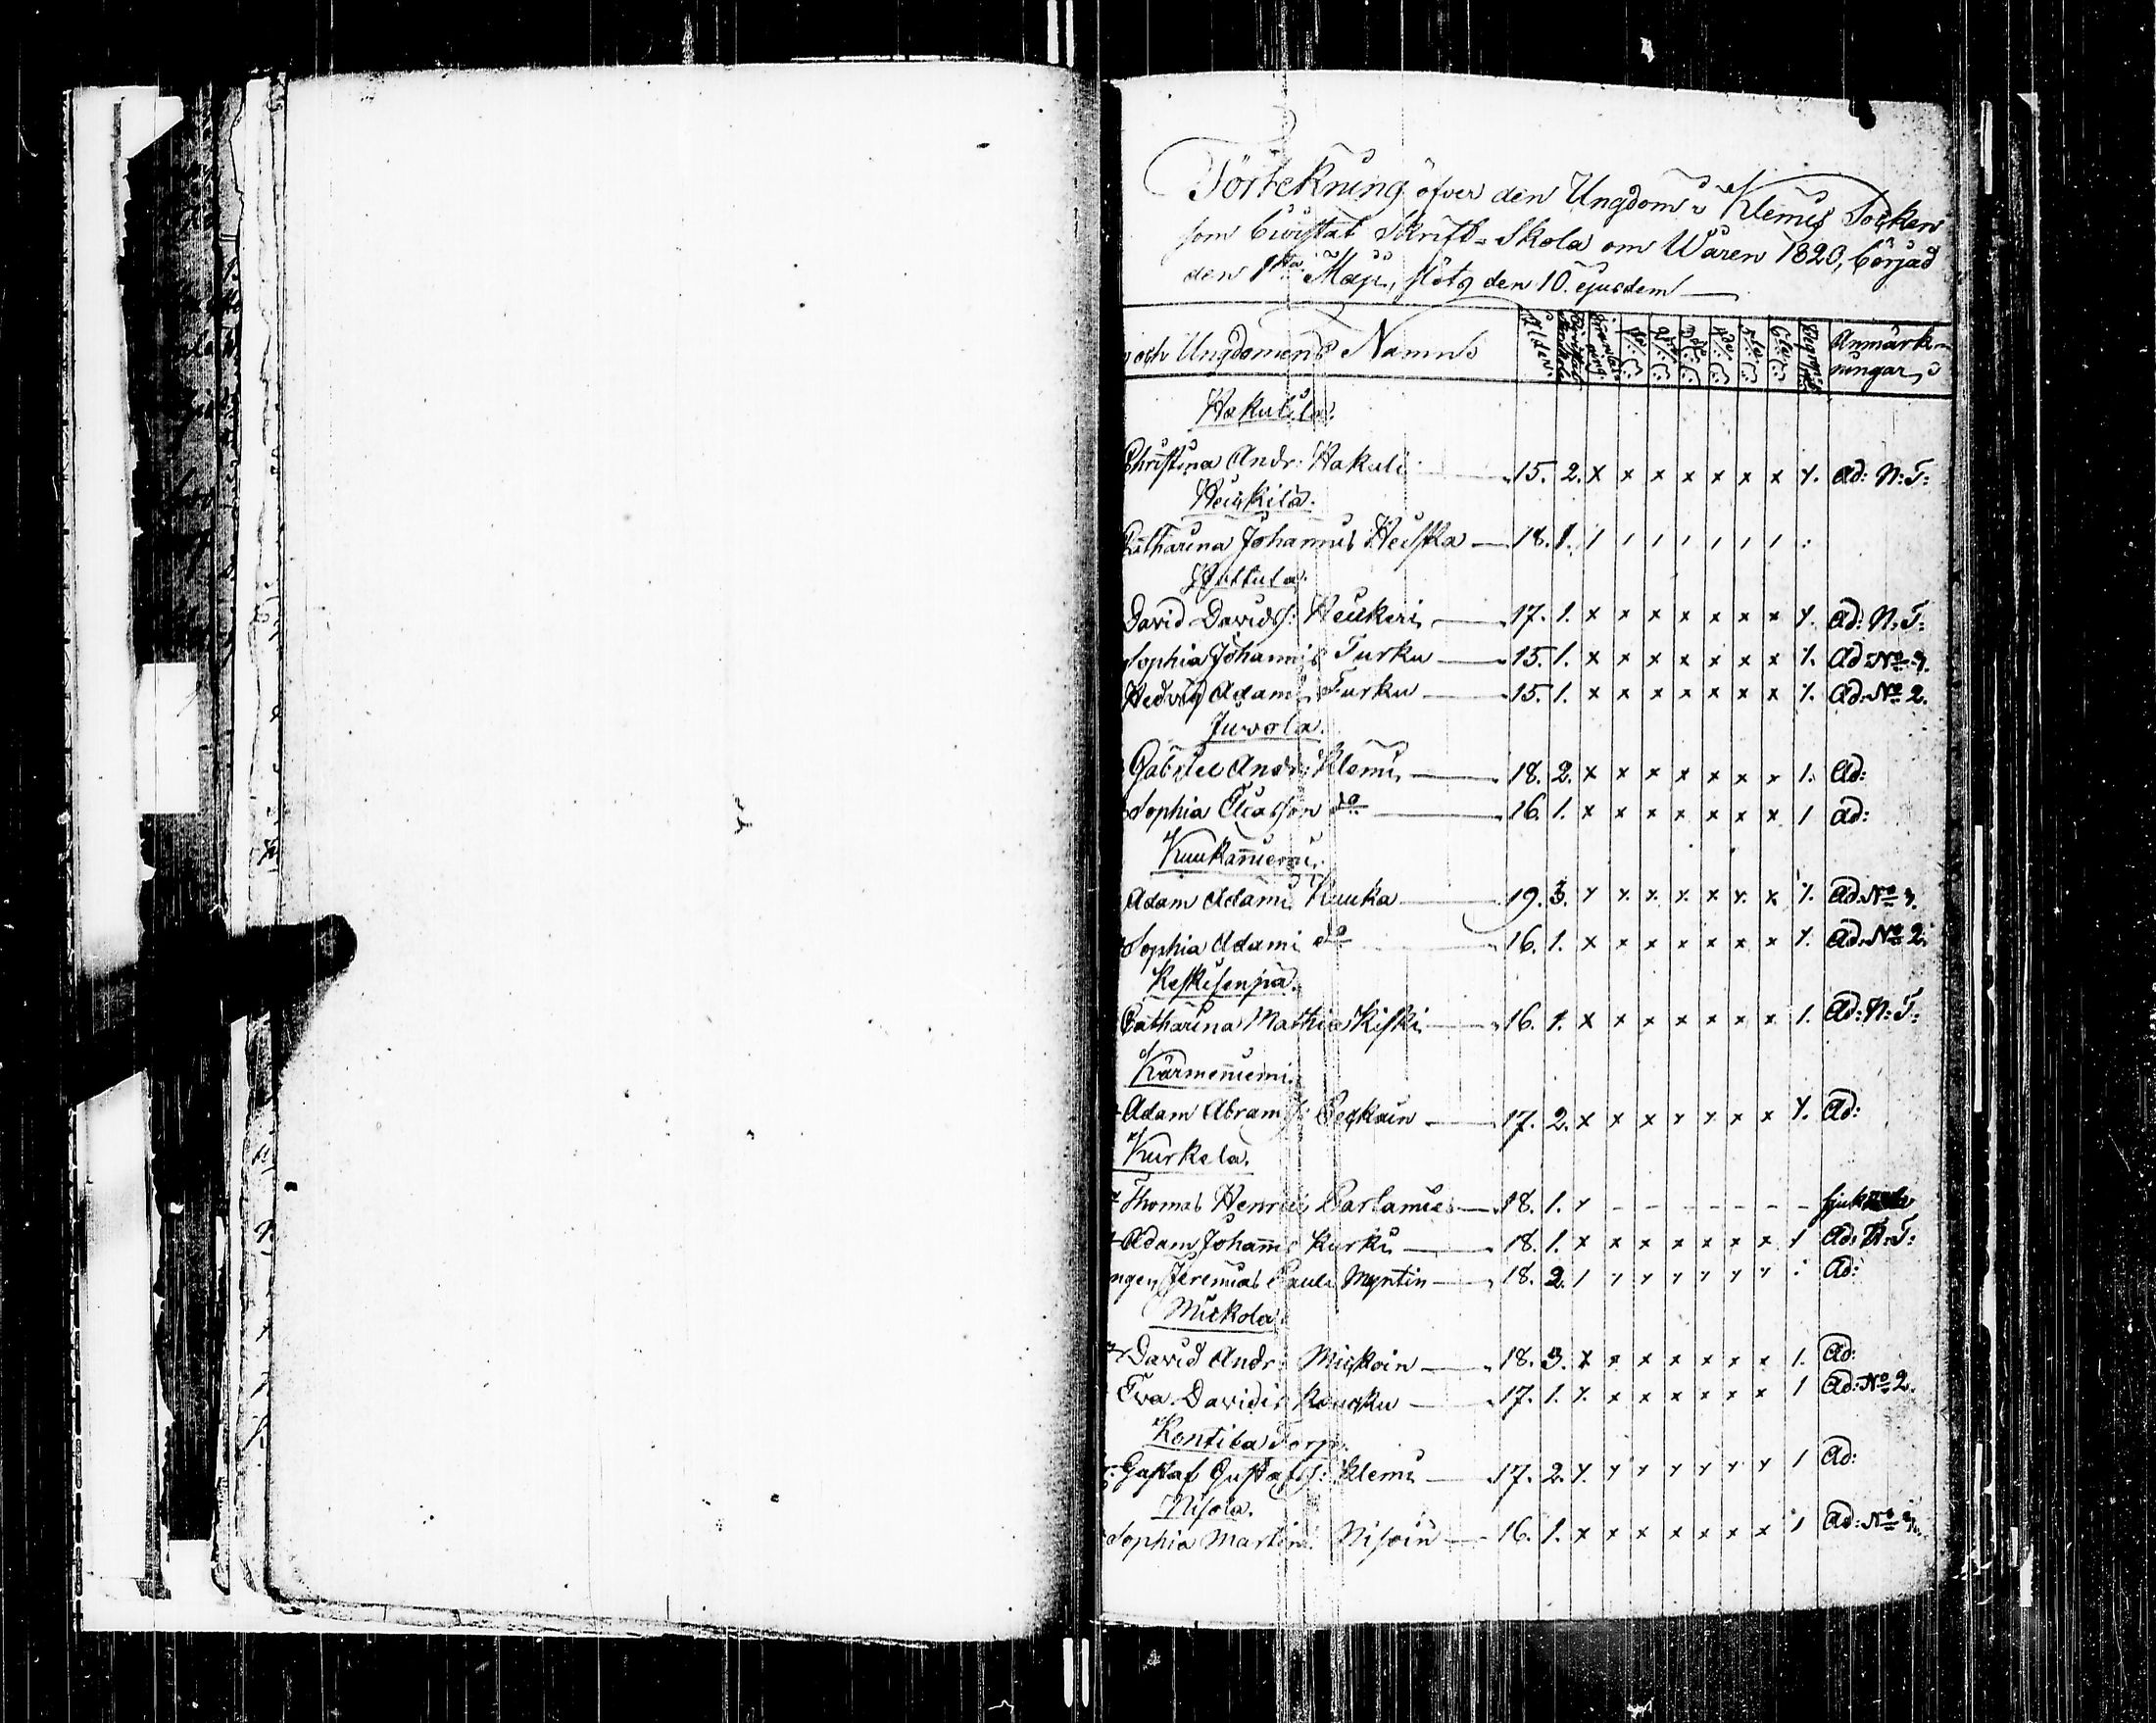 Förtekning öfver den Ungdom i Klemis Socken
som bivistat Skrift-Skola om Våren 1820, börjad
den 1sta Maji, slöts den 10. ejusdem
och Ungdomens Namn Ålder. 1sta 2dra 3dje 4de 5te 6te Anmärk-
ningar
Hakulila.
Christina Andr: Hakuli 15. 2. x x x x x x x x. Ad: N: T:
Heiskilä.
Catharina Johannis Heiska 18. 1. / / / / / / / :
Huttula.
David Davidss: Heikeri 17. 1. x x x x x x x x. Ad: N: T:
Sophia Johannis Turku 15. 1. x x x x x x x x. Ad: No
Hedvig Adami Turku 15. 1. x x x x x x x x. Ad: No 2.
Juvola.
Gabriel Andr: Klemi 18. 2. x x x x x x x 1. Ad:
Sophia Eliasson do 16. 1. x x x x x x x 1 Ad:
Kuukanniemi.
Adam Adami Kuuka 19. 3. x x x x x x x x. Ad: No
Sophia Adami do 16. 1. x x x x x x x x. Ad: No 2.
Keskisenpä.
Catharina Mathiæ Kiski 16. 1. x x x x x x x 1. Ad: N: T:
Kärmeniemi.
Adam Abramss: Peckoin 17. 2. x x x x x x x x. Ad:
Kurkela.
Thomas Henrici Parlamies 18. 1. x - - - - - - - sjuk
Adam Johannis Kurki 18. 1. x x x x x x x 1 Ad: N: T:
Jeremias Pauli Myntin 18. 2. / x x x x x x : Ad:
Mickola.
David Andr: Mickoin 18. 3. x x x x x x x 1. Ad:
Eva Davidis Koucku 17. 1. x x x x x x x 1 Ad: No 2.
Kontila Torp.
Gustaf Gustafss: Klemi 17. 2. x. x x x x x x 1 Ad:
Nisola.
Sophia Martini Nisoin 16. 1. x x x x x x x 1 Ad: No